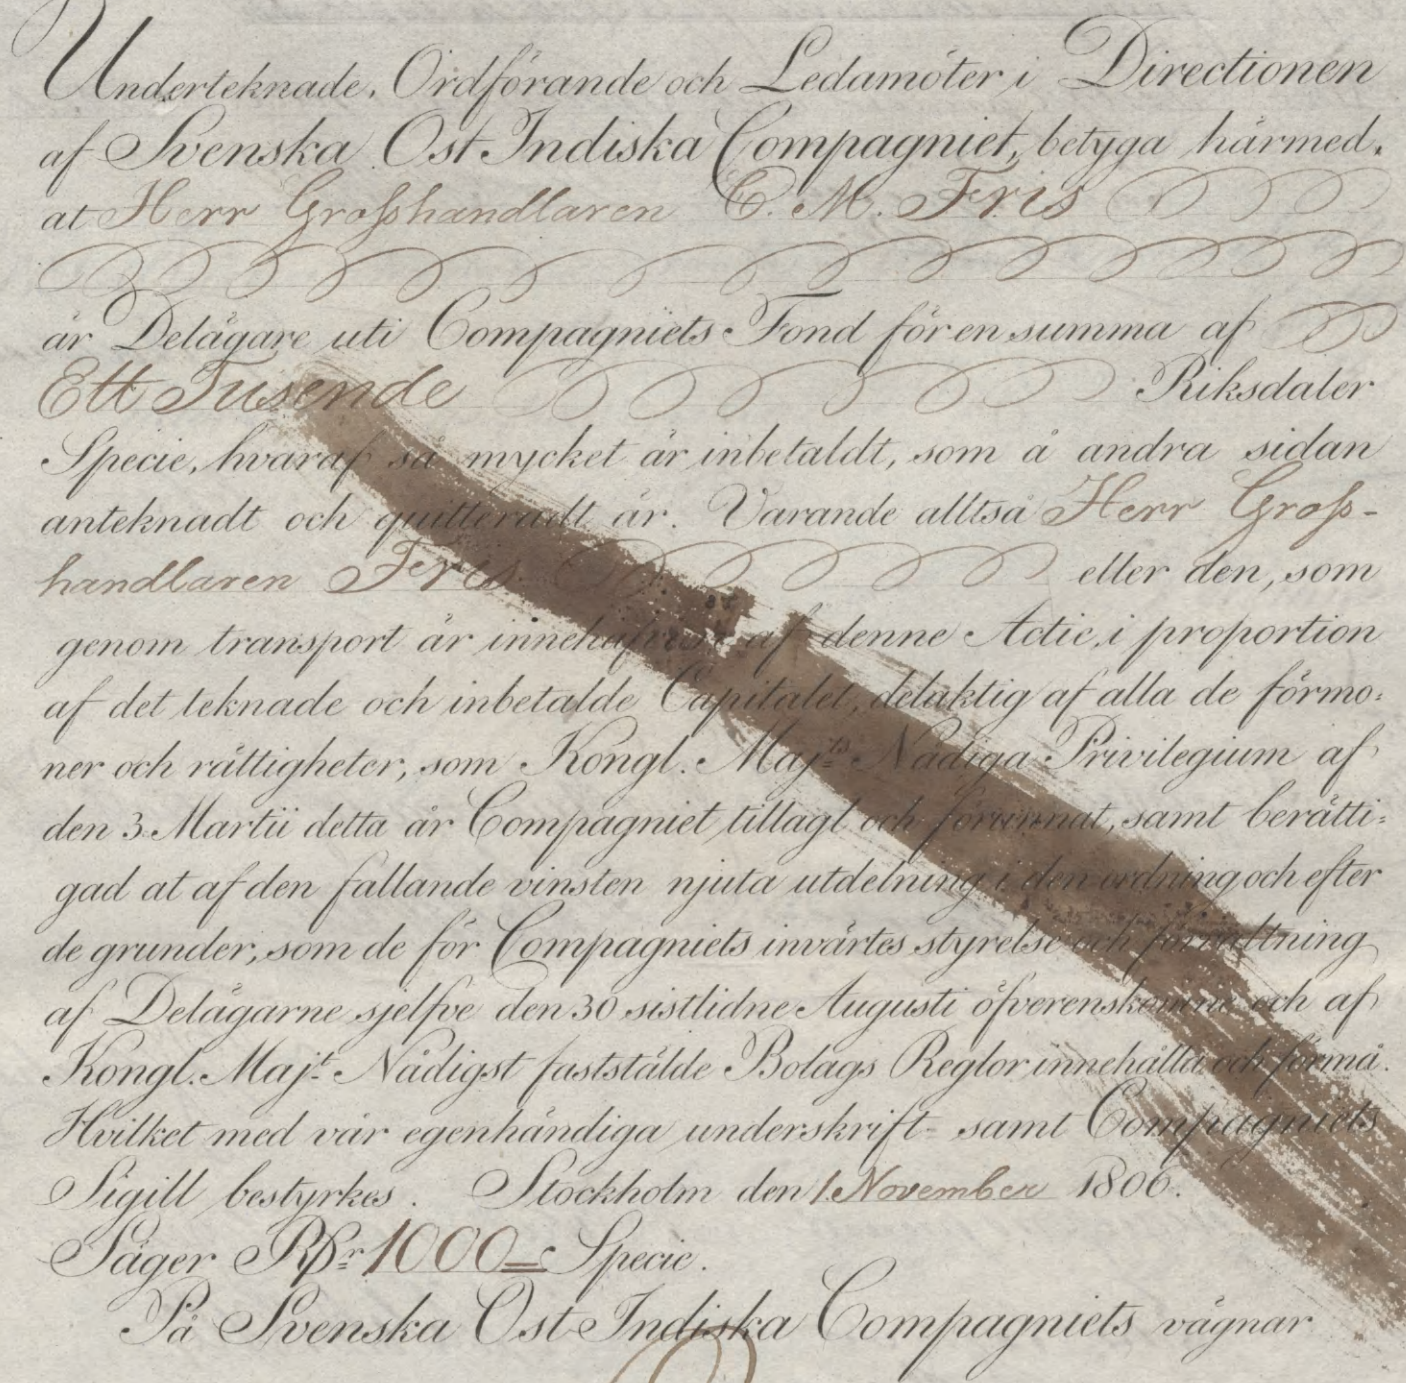 Underteknade, Ordförande och Ledamöter i Directionen
af Svenska Ost Indiska Compagniet, betyga härmed,
at Herr Grosshandlaren C. M. Fris
är Delägare uti Compagniets Fond för en summa af
Ett Tusende Riksdaler
Specie, hvaraf så mycket är inbetaldt, som å andra sidan
anteknadt och quitteradt är. Varande alltså Herr Gross-
handlaren Fris eller den, som
genom transport är innehafvare af denne Actie, i proportion
af det teknade och inbetalde Capitalet, delaktig af alla de förmo=
ner och rättigheter, som Kongl. Maj:ts Nådiga Privilegium af
den 3 Martii detta år Compagniet tillagt och förunnat, samt berätti=
gad at af den fallande vinsten njuta utdelning i den ordning och efter
de grunder, som de för Compagniets invärtes styrelse och förvaltning
af Delägarne sjelfve den 30 sistlidne Augusti öfverenskomne och af
Kongl. Maj:t Nådigst fastställde Bolags Reglor innehålla och förmå.
Hvilket med vår egenhändiga underskrift= samt Compagniets
Sigill bestyrkes. Stockholm den 1. November 1806.
Säger Rdr 1000 Specie.
På Svenska Ost Indiska Compagniets vägnar